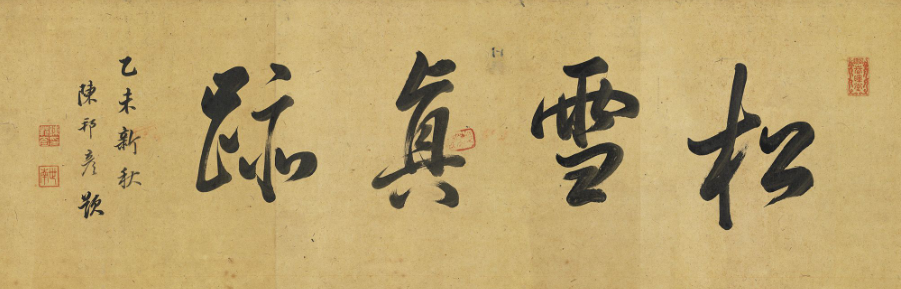 松雪真跡
乙未新秋
陳邦彦題